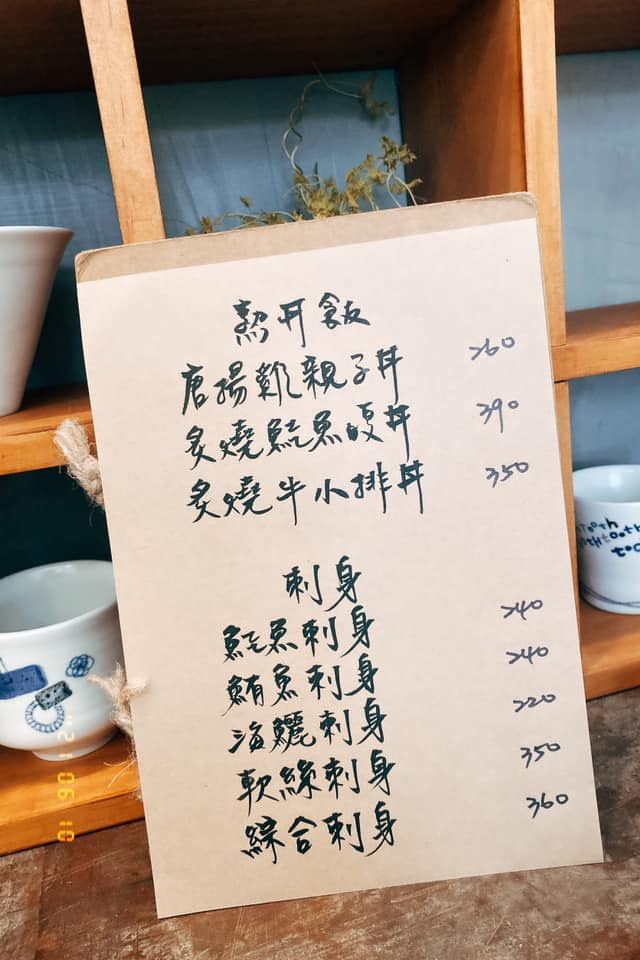 熱丼飯
唐揚雞親子丼 260
炙燒鮭魚腹丼 390
炙燒牛小排丼 350
刺身
鮭魚刺身 240
鮪魚刺身 240
海鱺刺身 220
軟絲刺身 350
綜合刺身 360
'21 06 10